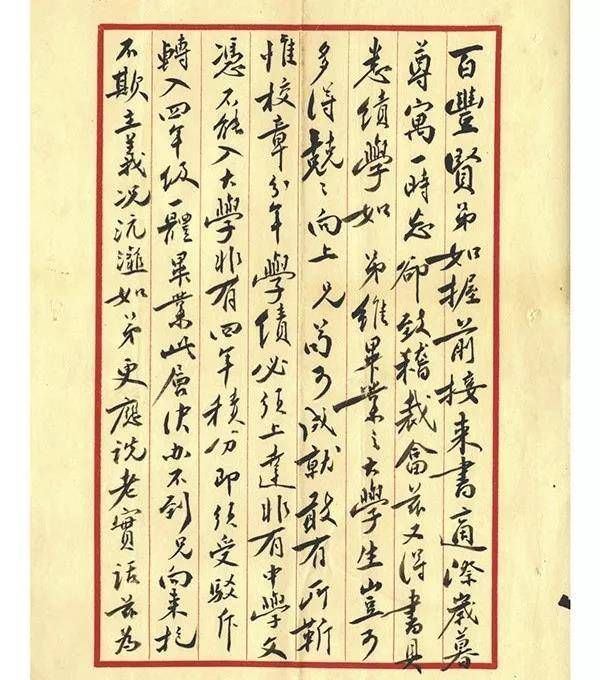 百豐賢弟如握前接來書適際歲暮
尊寓一時忘卻致稽裁畣茲又得書具
悉績學如 弟雖畢業之大學生豈可
多得兢〻向上兄苟可成就敢有所靳
惟校章分年學績必須上達非有中學文
憑不能入大學非有四年積分即須受駁斥
轉入四年級一體畢業此層決办不到兄向来抱
不欺主義况沆瀣如弟更應説老實話茲為